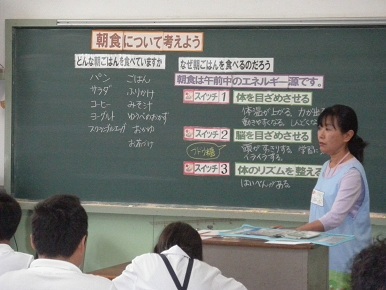 朝食について考えよう
どんな朝ごはんを食べていますか
パン ごはん
サラダ ふりかけ
コーヒー みそ汁
ヨーグルト ゆうべのおかず
スクランブルエッグ おかゆ
お茶づけ
なぜ朝ごはんを食べるのだろう
朝食は午前中のエネルギー源です。
スイッチ1 体を目ざめさせる
体温が上がる 力が出
スイッチ2 脳を目ざめさせる
ブドウ糖
頭がすっきりする 学習に
イライラする。
スイッチ3 体のリズムを整える
はいべんがある